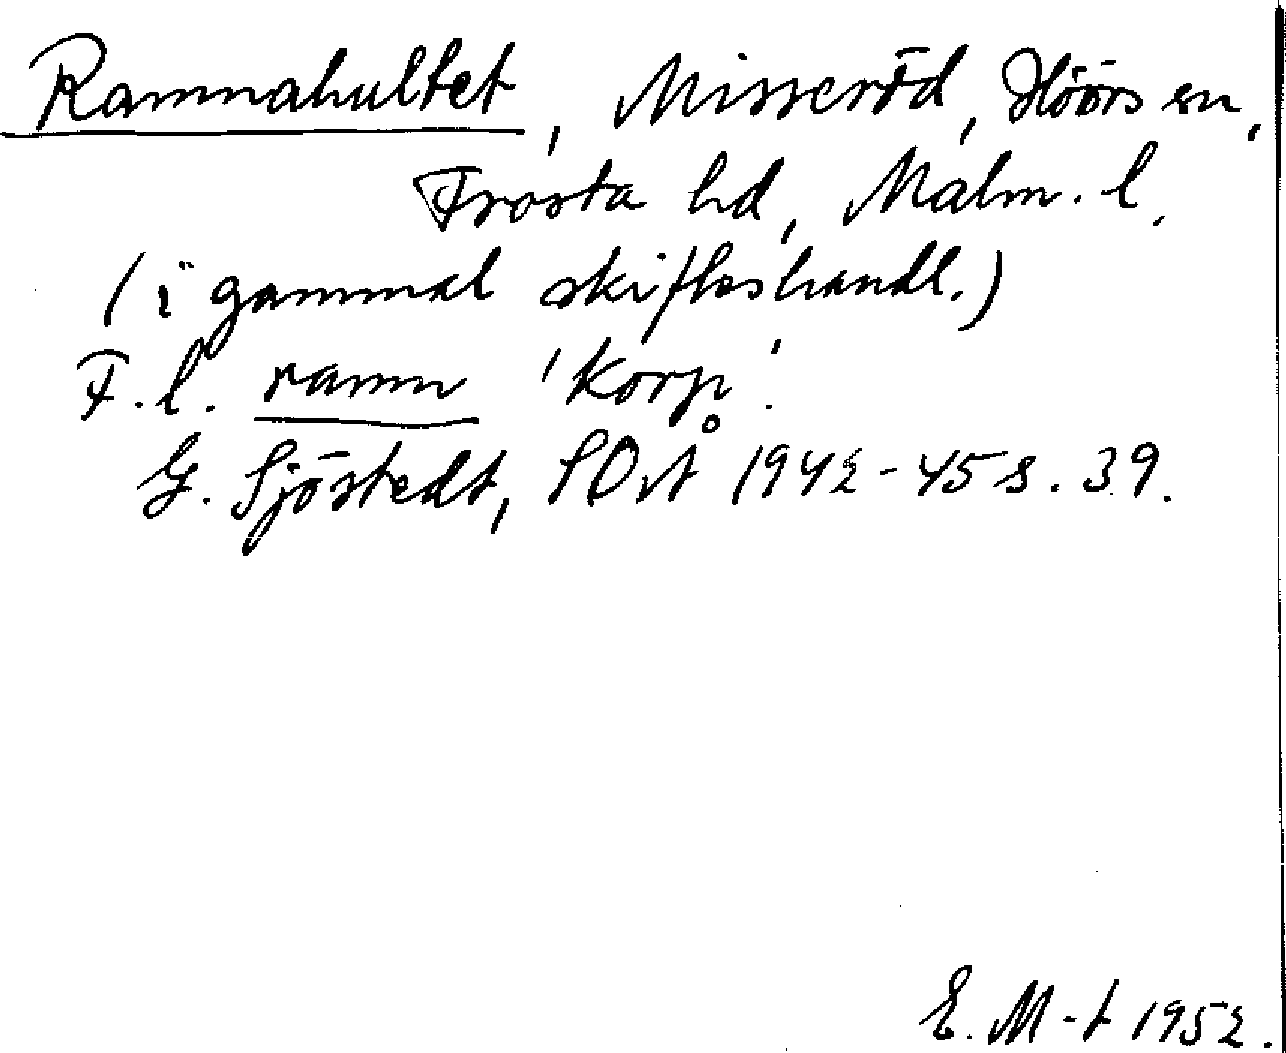 Ramnahultet, Misseröd, Höörs sn,
Frosta hd, Malm. l.
(i gammal skifteshandl.)
F. l. ramn 'korp'.
G. Sjöstedt, SOÅ 1942-45 s. 39.
E. M-t 1952.